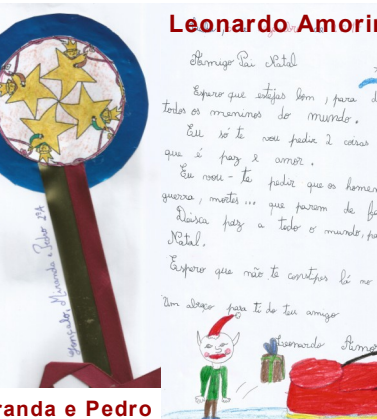 Leonardo Amorim
Amigo Pai Natal
Espero que estejas bom, para d
todos os meninos do mundo.
Eu só te vou pedir 2 coisas
que é paz e amor.
Eu vou-te pedir que os homen
guerra, mortes ... que parem de fa
Deixa paz a todo o mundo, pa
Natal.
Espero que não te constipes lá no
Um abraço para ti do teu amigo
Leonardo Amor
Gonçalo, Miranda e Pedro 2ºA
randa e Pedro